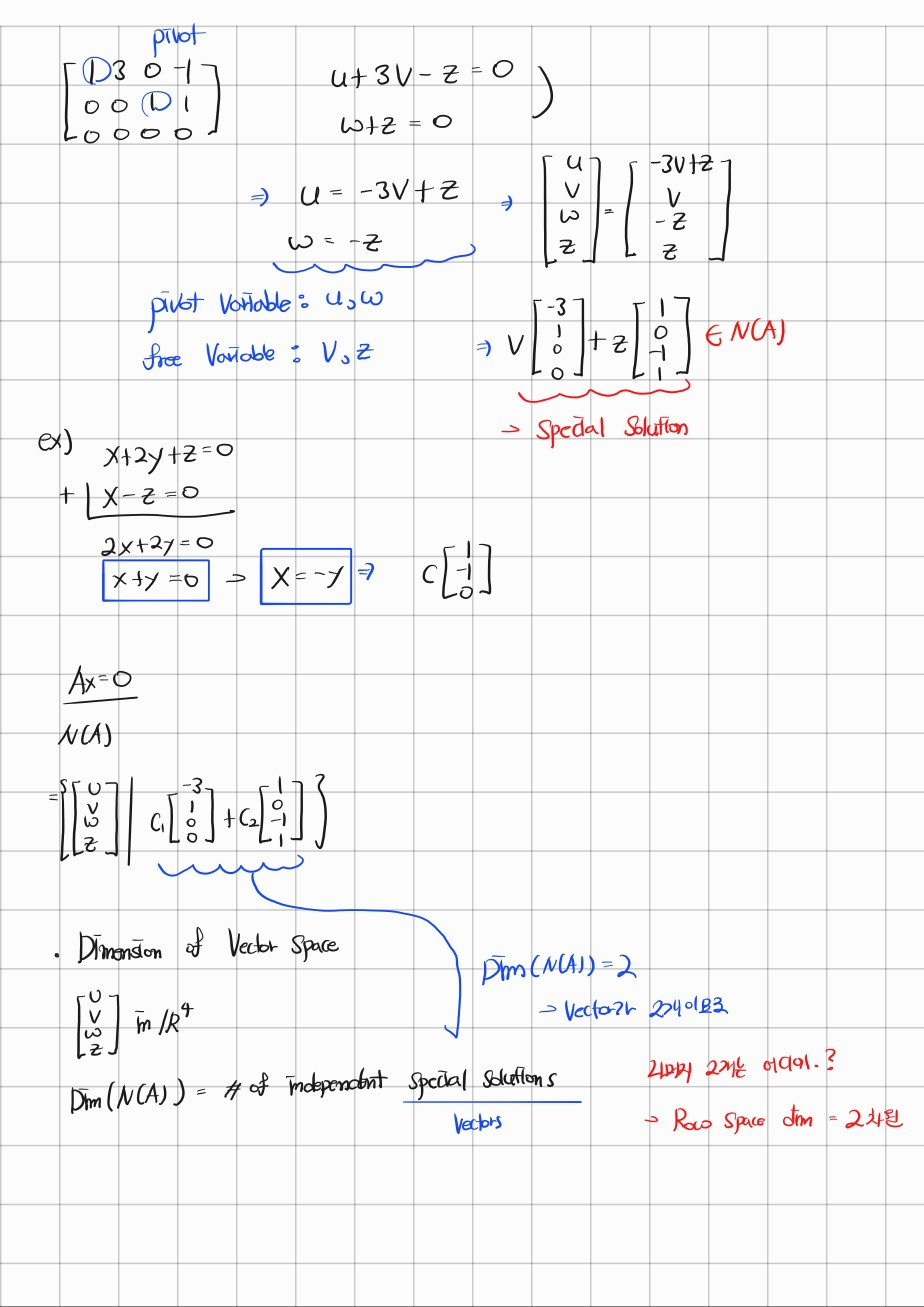 pivot
[1 3 0 -1
0 0 1 1
0 0 0 0]
u+3v-z=0
w+z=0 )
⇒ u = -3v+z
w = -z
⇒ [u v w z] = [-3v+z v -z z]
pivot Variable : u, w
free Variable : v, z
⇒ v[-3 1 0 0] + z[1 0 -1 1] ∈ N(A)
→ Special Solution
ex) x+2y+z=0
+ x-z=0
2x+2y=0
x+y=0 → x=-y ⇒ C[1 -1 0]
Ax=0
N(A)
= {[u v w z] | C₁[-3 1 0 0] + C₂[1 0 -1 1]}
· Dimension of Vector Space
[u v w z] in ℝ⁴
Dim(N(A))=2
→ Vector가 2개이므로
Dim(N(A)) = # of independent special solutions
vectors
나머지 2개는 어디에.?
→ Row space dim = 2차원